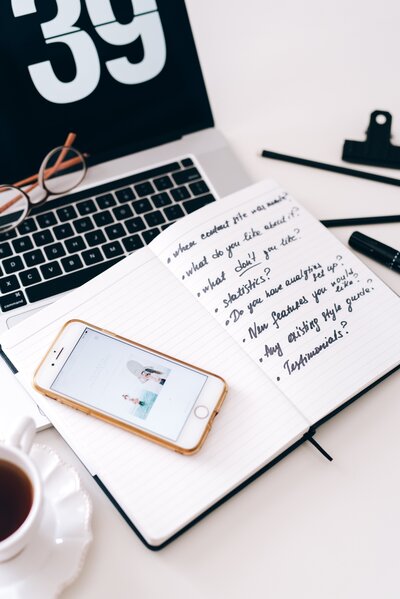 39
• Where content site was made?
• What do you like about it?
• what you don't like?
• statistics?
• Do you have analytics set up?
• New features you would like?
• Any existing style guide?
• Testimonials?